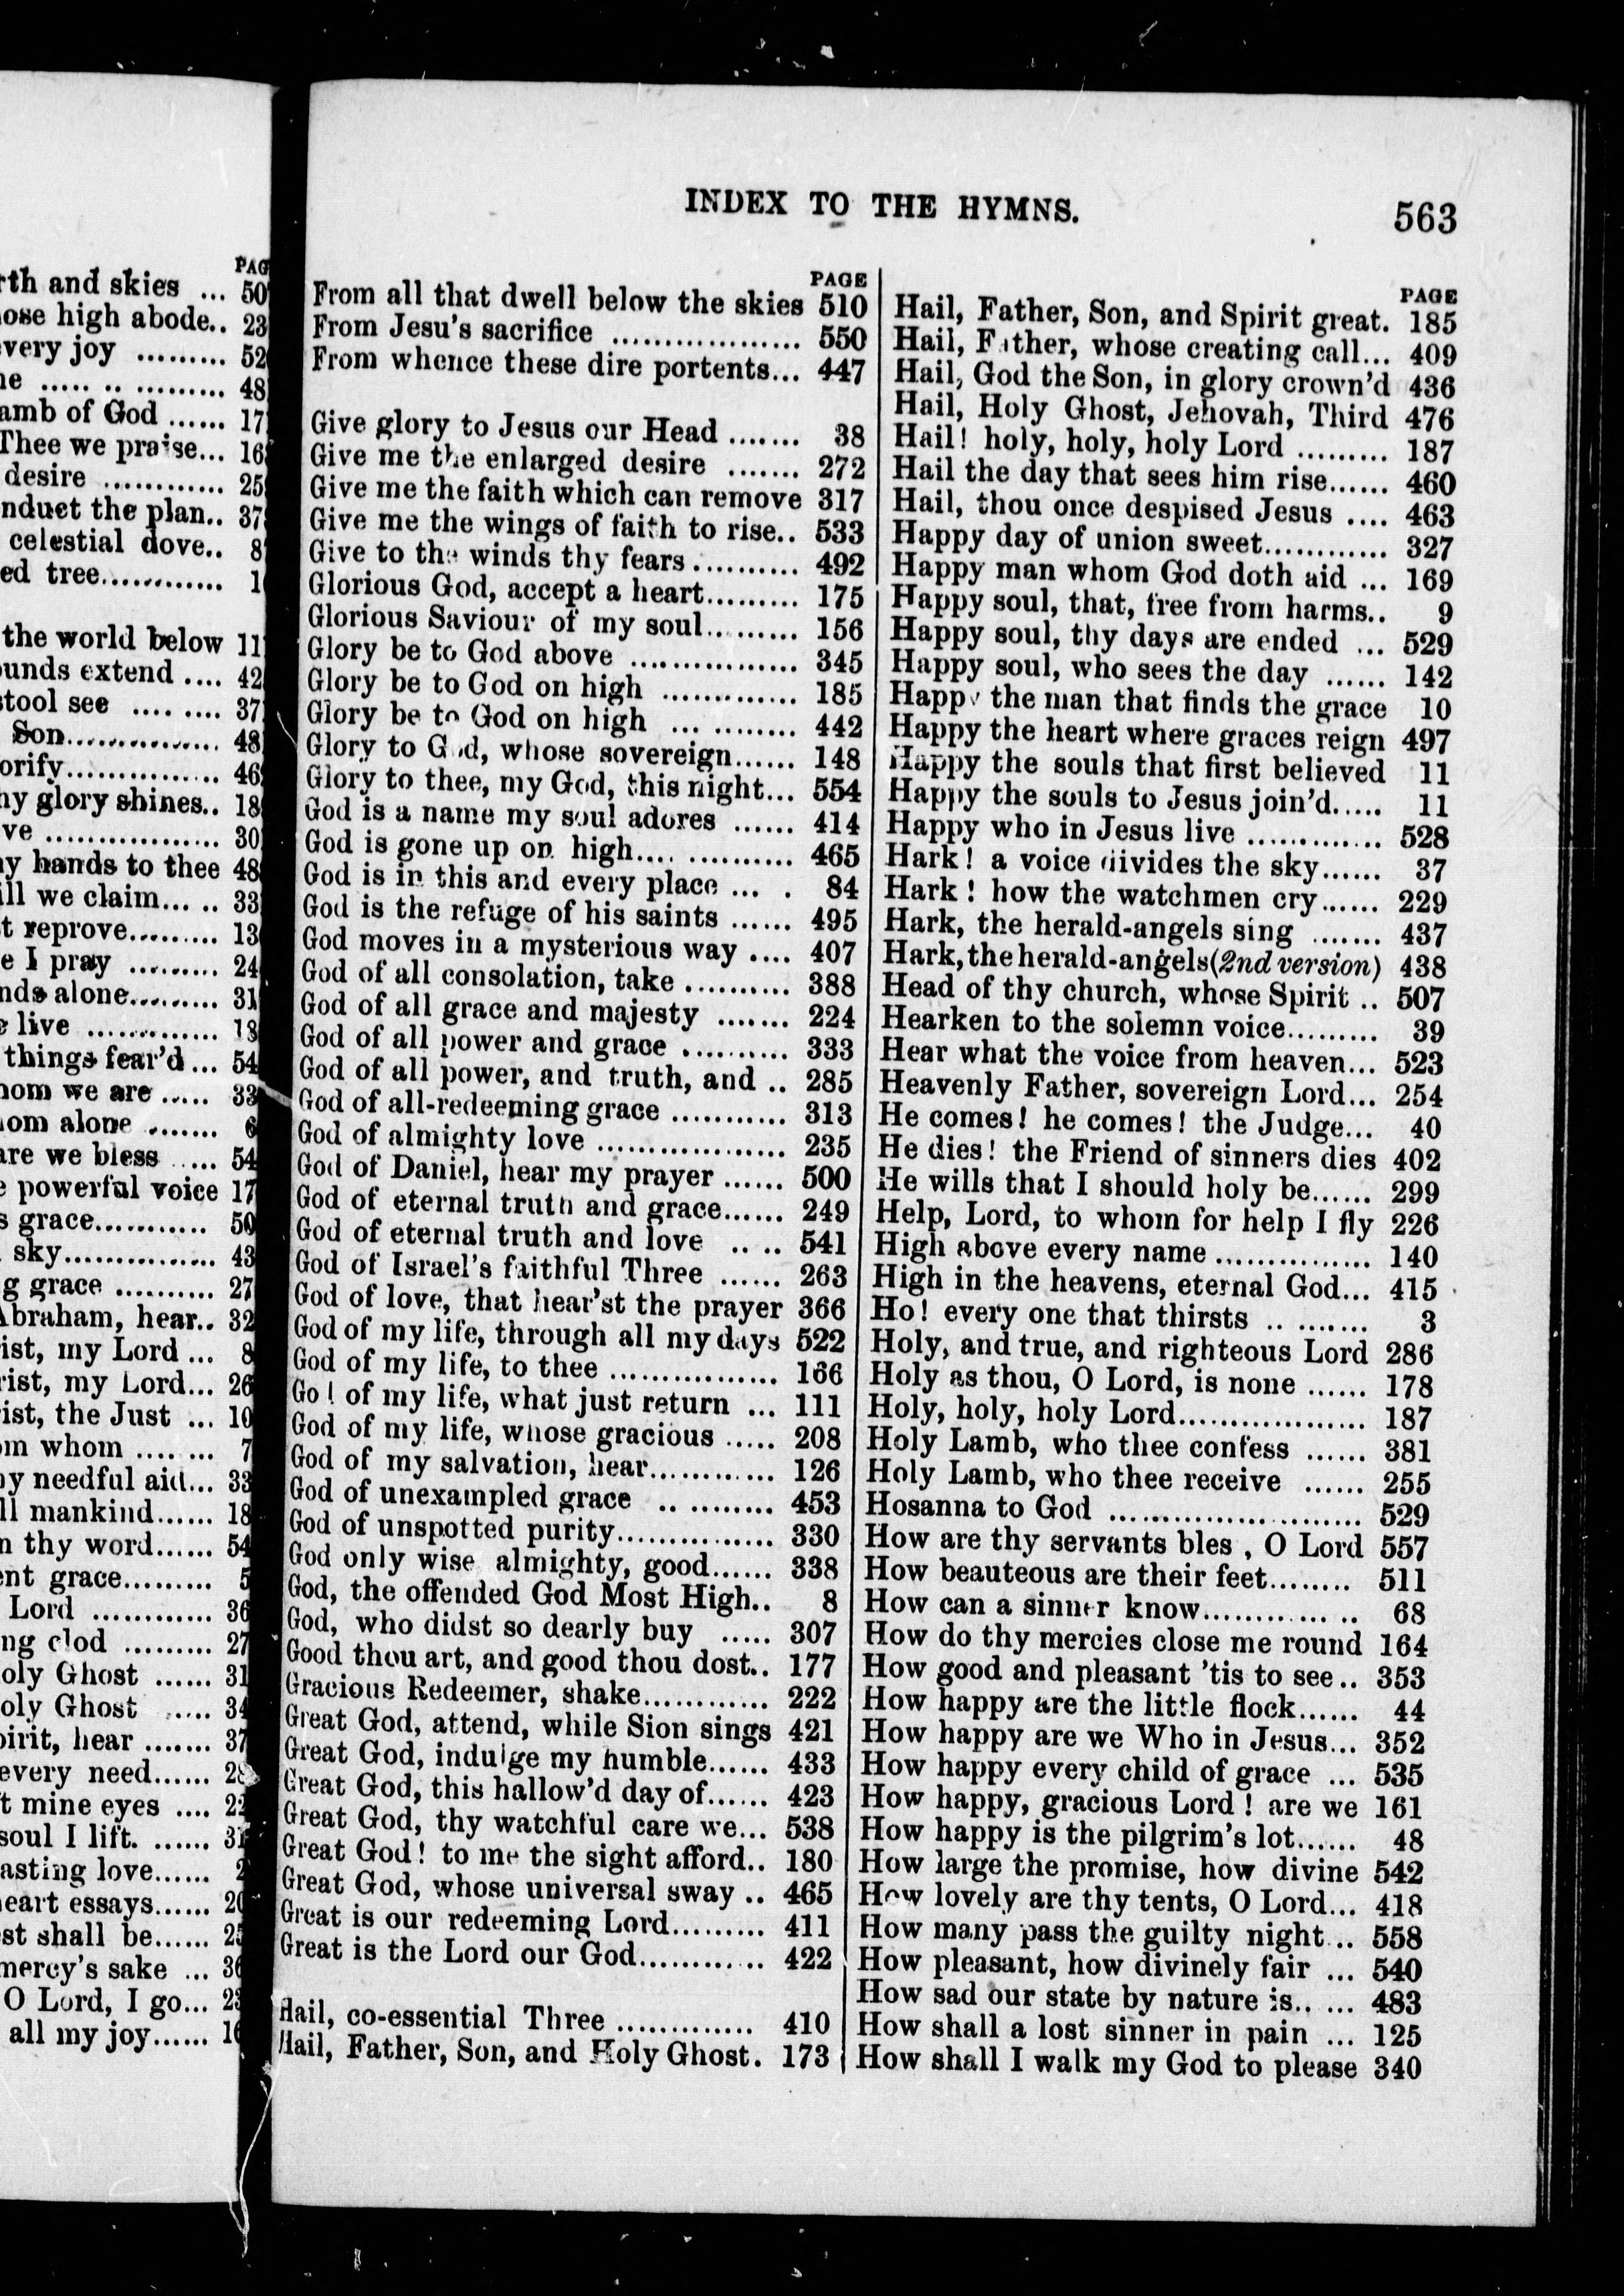 PAG
rth and skies ... 50
ose high abode.. 23
very joy ......... 52
ne ..... .. ......... 48
amb of God ...... 17
Thee we praise... 16
desire ............ 25
nduct the plan.. 37
celestial dove.. 8
ed tree............ 1
the world below 11
unds extend .... 42
stool see .... .... 37
Son............... 48
orify............... 46
hy glory shines.. 18
ve ................. 30
y hands to thee 48
ill we claim... .. 33
t reprove......... 13
e I pray ......... 24
nds alone......... 31
e live ............. 18
things fear'd ... 54
hom we are ..... 33
hom alone ....... 6
are we bless ..... 54
e powerful voice 17
s grace........... 50
sky............... 43
g grace .......... 27
Abraham, hear.. 32
rist, my Lord ... 8
rist, my Lord... 26
rist, the Just ... 10
om whom ........ 7
y needful aid... 33
ll mankind...... 18
n thy word...... 54
ent grace......... 5
Lord ............ 36
ng clod ......... 27
oly Ghost ...... 31
oly Ghost ..... 34
pirit, hear ....... 37
every need...... 28
t mine eyes .... 22
soul I lift. ...... 31
asting love...... 2
heart essays...... 20
st shall be...... 25
mercy's sake ... 36
O Lord, I go... 23
all my joy...... 16
INDEX TO THE HYMNS. 563
PAGE
From all that dwell below the skies 510
From Jesu's sacrifice .................. 550
From whence these dire portents... 447
Give glory to Jesus our Head ....... 38
Give me the enlarged desire ....... 272
Give me the faith which can remove 317
Give me the wings of faith to rise.. 533
Give to the winds thy fears .......... 492
Glorious God, accept a heart......... 175
Glorious Saviour of my soul......... 156
Glory be to God above ................ 345
Glory be to God on high ............. 185
Glory be to God on high ... ......... 442
Glory to God, whose sovereign...... 148
Glory to thee, my God, this night... 554
God is a name my soul adores ...... 414
God is gone up on high.... .......... 465
God is in this and every place ... . 84
God is the refuge of his saints ...... 495
God moves in a mysterious way .... 407
God of all consolation, take .......... 388
God of all grace and majesty ....... 224
God of all power and grace .......... 333
God of all power, and truth, and .. 285
God of all-redeeming grace ........... 313
God of almighty love .................. 235
God of Daniel, hear my prayer ...... 500
God of eternal truth and grace...... 249
God of eternal truth and love .. .. 541
God of Israel's faithful Three ...... 263
God of love, that hear'st the prayer 366
God of my life, through all my days 522
God of my life, to thee ................ 166
God of my life, what just return ... 111
God of my life, whose gracious ..... 208
God of my salvation, hear............ 126
God of unexampled grace .. ........ 453
God of unspotted purity............... 330
God only wise almighty, good...... 338
God, the offended God Most High.. 8
God, who didst so dearly buy ..... 307
Good thou art, and good thou dost.. 177
Gracious Redeemer, shake............ 222
Great God, attend, while Sion sings 421
Great God, indulge my humble...... 433
Great God, this hallow'd day of...... 423
Great God, thy watchful care we... 538
Great God! to me the sight afford.. 180
Great God, whose universal sway .. 465
Great is our redeeming Lord......... 411
Great is the Lord our God............ 422
Hail, co-essential Three ............. 410
Hail, Father, Son, and Holy Ghost. 173
PAGE
Hail, Father, Son, and Spirit great. 185
Hail, Father, whose creating call... 409
Hail, God the Son, in glory crown'd 436
Hail, Holy Ghost, Jehovah, Third 476
Hail! holy, holy, holy Lord ......... 187
Hail the day that sees him rise...... 460
Hail, thou once despised Jesus .... 463
Happy day of union sweet............ 327
Happy man whom God doth aid ... 169
Happy soul, that, free from harms.. 9
Happy soul, thy days are ended ... 529
Happy soul, who sees the day ...... 142
Happy the man that finds the grace 10
Happy the heart where graces reign 497
Happy the souls that first believed 11
Happy the souls to Jesus join'd..... 11
Happy who in Jesus live ............. 528
Hark! a voice divides the sky...... 37
Hark! how the watchmen cry...... 229
Hark, the herald-angels sing ....... 437
Hark, the herald-angels (2nd version) 438
Head of thy church, whose Spirit .. 507
Hearken to the solemn voice......... 39
Hear what the voice from heaven... 523
Heavenly Father, sovereign Lord... 254
He comes! he comes! the Judge... 40
He dies! the Friend of sinners dies 402
He wills that I should holy be...... 299
Help, Lord, to whom for help I fly 226
High above every name ............... 140
High in the heavens, eternal God... 415
Ho! every one that thirsts .. ....... 3
Holy, and true, and righteous Lord 286
Holy as thou, O Lord, is none ...... 178
Holy, holy, holy Lord.................. 187
Holy Lamb, who thee confess ...... 381
Holy Lamb, who thee receive ...... 255
Hosanna to God ........................ 529
How are thy servants bles , O Lord 557
How beauteous are their feet........ 511
How can a sinner know............ .. 68
How do thy mercies close me round 164
How good and pleasant 'tis to see.. 353
How happy are the little flock...... 44
How happy are we Who in Jesus... 352
How happy every child of grace ... 535
How happy, gracious Lord! are we 161
How happy is the pilgrim's lot...... 48
How large the promise, how divine 542
How lovely are thy tents, O Lord... 418
How many pass the guilty night... 558
How pleasant, how divinely fair ... 540
How sad our state by nature is.. ... 483
How shall a lost sinner in pain ... 125
How shall I walk my God to please 340